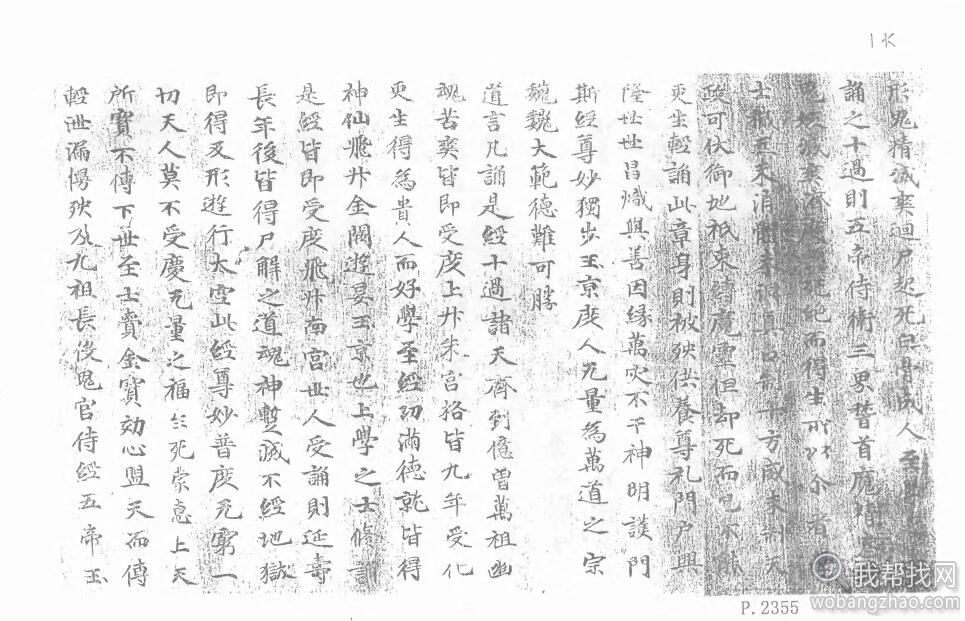 形鬼精滅爽迴尸起死白骨成人至
誦之十過則五帝侍衛三界稽首魔
鬼滅爽濟度絕而得生所以尒者
士穢五未消十方
政可伏御地祇束縛魔靈但却死而已不
更生輕誦此章身則被殃供養尊礼門戶興
隆世世昌熾與善因緣萬灾不干神明護門
斯經尊妙獨步玉京度人无量為萬道之宗
巍巍大範德難可勝
道言凡誦是經十過諸天齊到億曾萬祖幽
魂苦爽皆即受度上升朱宮格皆九年受化
更生得為貴人而好學至經功滿德就皆得
神仙飛升金闕遊晏玉京也上學之士脩誦
是經皆即受度飛升南宮世人受誦則延壽
長年後皆得尸解之道魂神暫滅不經地獄
即得反形遊行太空此經尊妙普度无窮一
切天人莫不受慶无量之福生死蒙惠上天
所寶不傳下世至士賫金寶効心盟天而傳
輕世漏慢殃及九祖長役鬼官侍經五帝玉
1 水
P.2355
我帮找网
wobangzhao.com